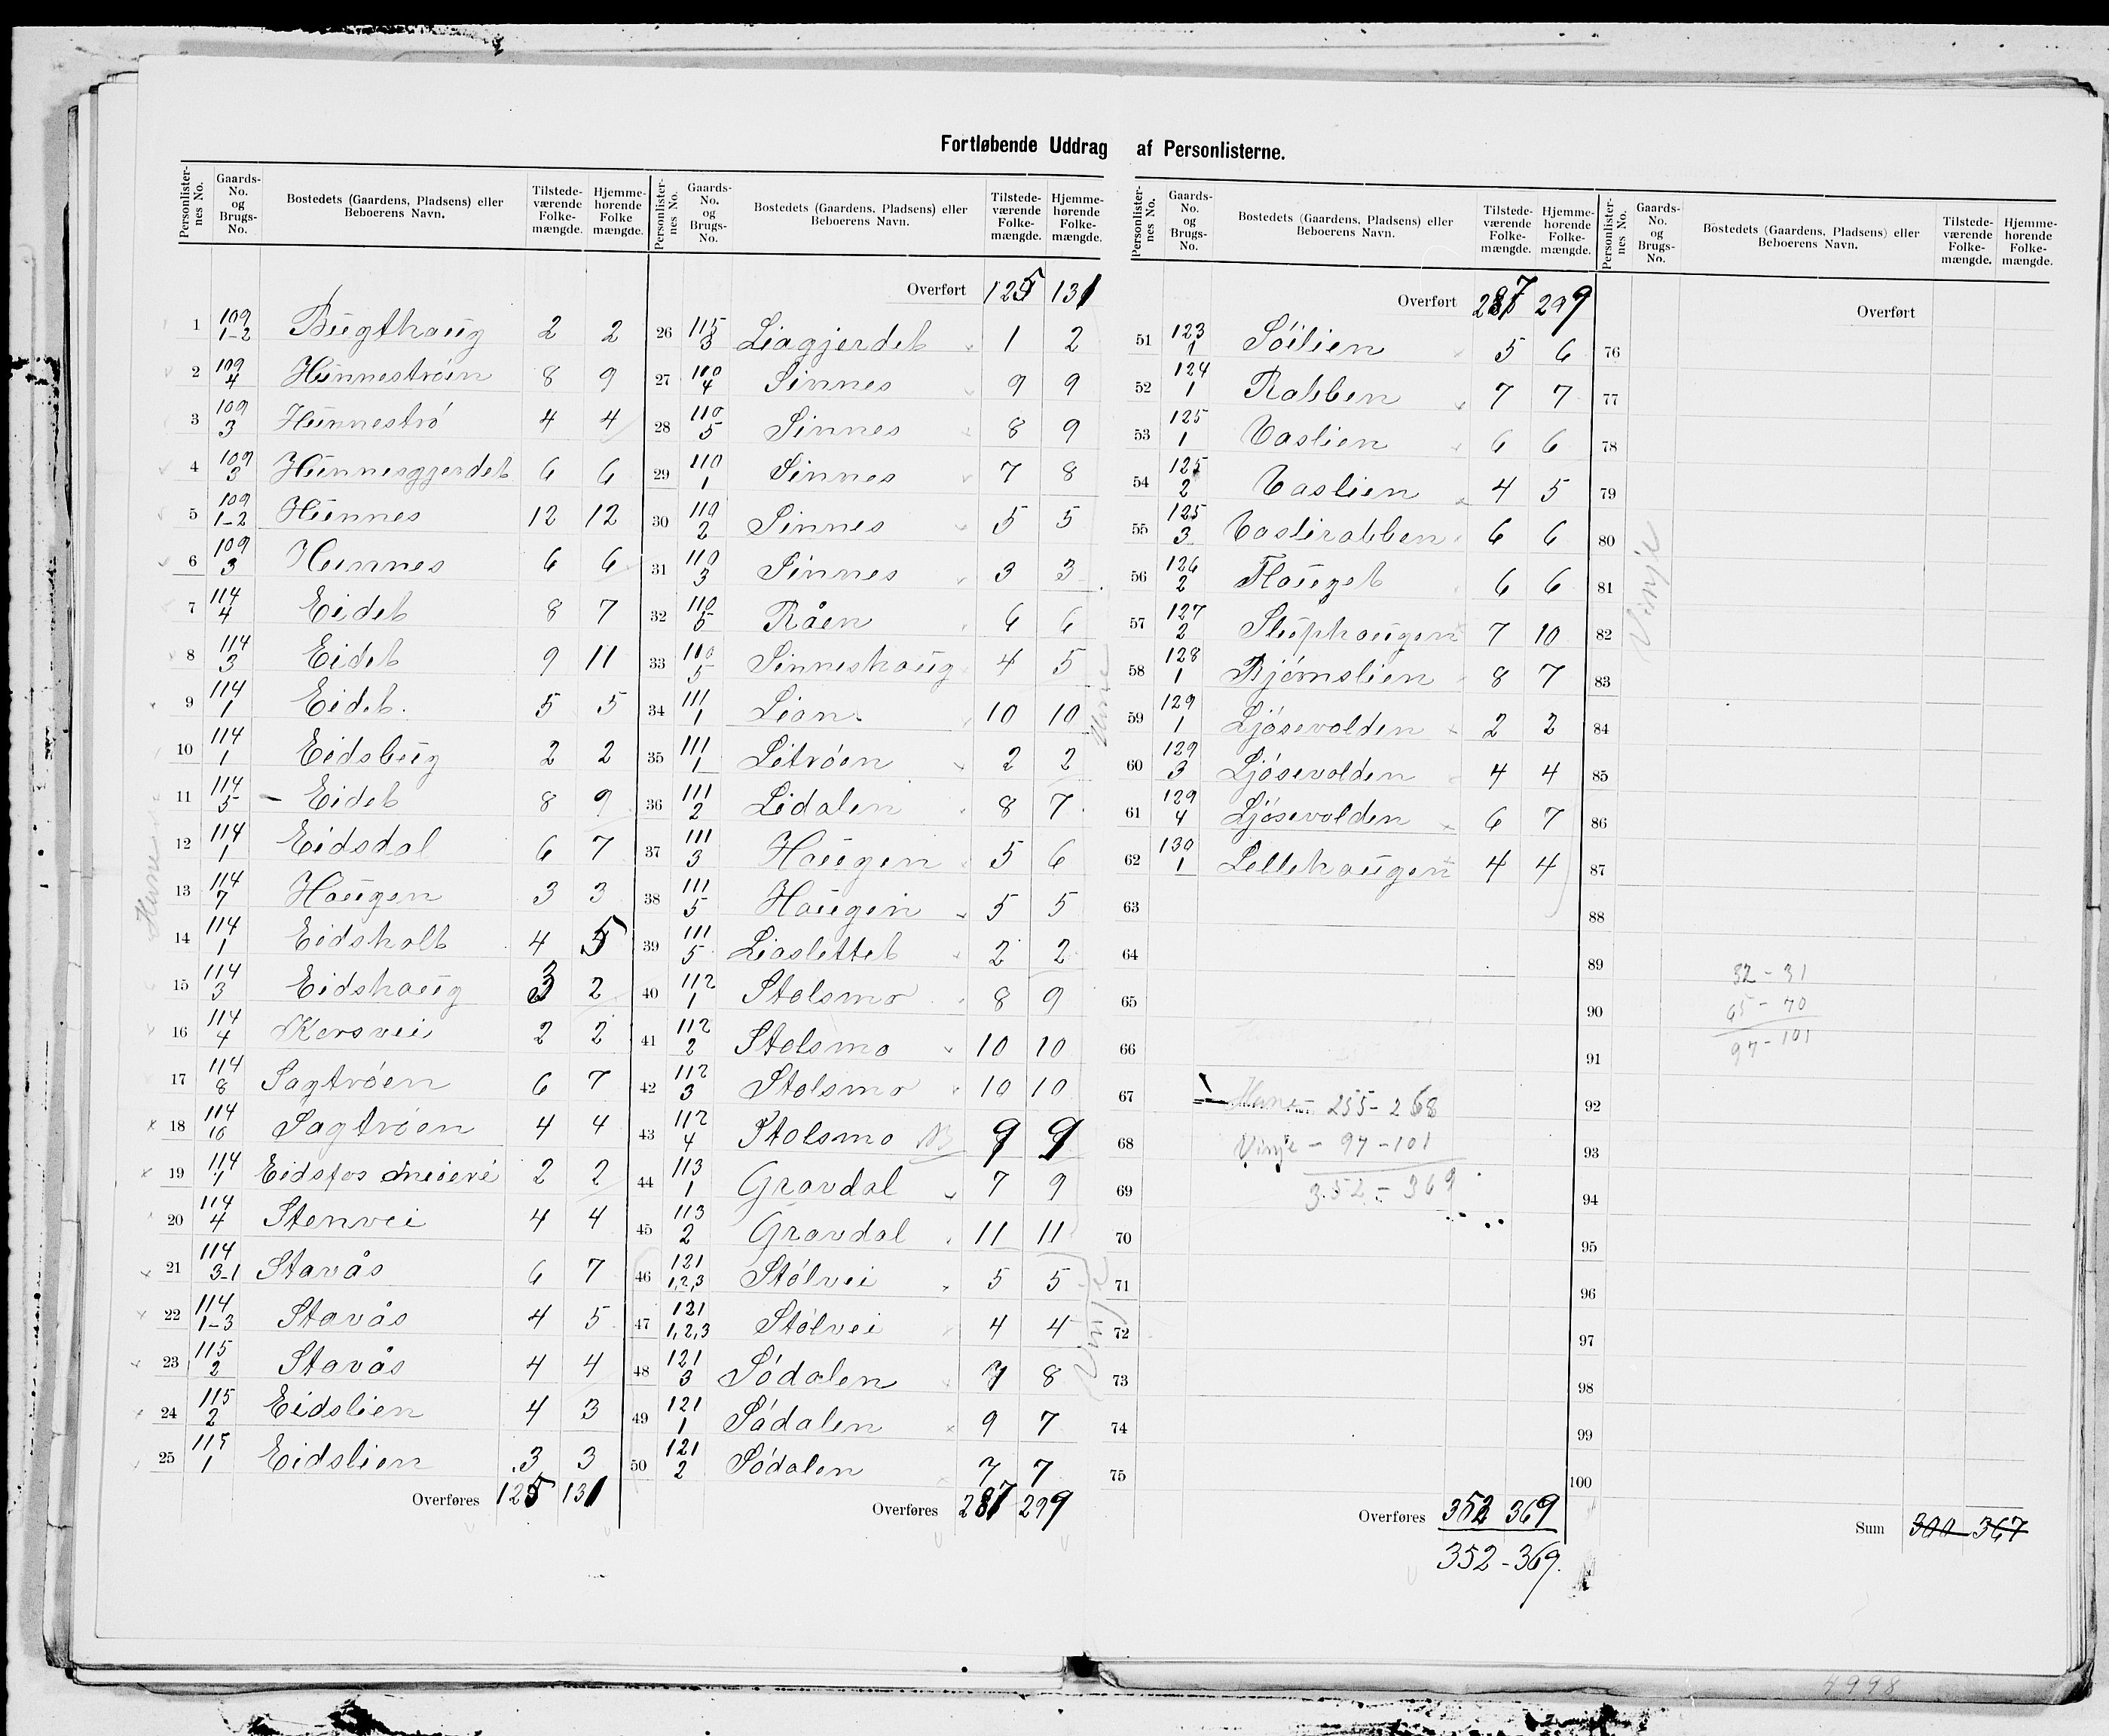 Fortløbende Uddrag af Personlisterne.
Personlisternes No. Gaards-No. og Brugs-No. Bostedets (Gaardens, Pladsens) eller Beboerens Navn. Tilstedeværende Folkemængde. Hjemmehørende Folkemængde.
1 109 1-2 Bugthaug 2 2
2 109 4 Hünnestrøen 8 9
3 109 3 Hünnestrø 4 4
4 109 3 Hünnesgjerdet 6 6
5 109 1-2 Hünnes 12 12
6 109 3 Hünnes 6 6
7 114 4 Eidet 8 7
8 114 3 Eidet 9 11
9 114 1 Eidet. 5 5
10 114 1 Eidsbug 2 2
11 114 5 - Eidet 8 9
12 114 1 Eidsdal 6 7
13 114 7 Haugen 3 3
14 114 1 Eidsholt 4 5
15 114 3 Eidshaug 3 2
16 114 4 Korsvei 2 2
17 114 8 Sagtrøen 6 7
18 114 10 Sagtrøen 4 4
19 114 1 Eidsfos meieri 2 2
20 114 4 Stenvei 4 4
21 114 3-1 Stavås 6 7
22 114 1-3 Stavås 4 5
23 115 2 Stavås 4 4
24 115 2 Eidslien 4 3
25 115 1 Eidslien 3 3
Overføres 125 131
Hune
Overført 125 131
26 115 3 Liagjerdet 1 2
27 110 4 Sinnes 9 9
28 110 5 Sinnes 8 9
29 110 1 Sinnes 7 8
30 110 2 Sinnes 5 5
31 110 3 Sinnes 3 3
32 110 5 Råen 6 6
33 110 5 Sinneshaug 4 5
34 111 1 Lian. 10 10
35 111 1 Litrøen 2 2
36 111 2 Lidalen 8 7
37 111 3 Haugen 5 6
38 111 5 Haugen 5 5
39 111 5 Liaslettet 2 2
40 112 1 Stolsmo 8 9
41 112 2 Stolsmo 10 10
42 112 3 Stolsmo 10 10
43 112 4 Stolsmo 9 9
44 113 1 Gravdal 7 9
45 113 2 Gravdal 11 11
46 121 1,2,3 Stølvei 5 5
47 121 1,2,3 Stølvei 4 4
48 121 3 Sødalen 7 8
49 121 1 Sødalen 9 7
50 121 2 Sødalen 7 7
Overføres 287 299
Hune
Vinje
Overført 287 299
51 123 1 Søilien 5 6
52 124 1 Rabben 7 7
53 125 1 Vaslien 6 6
54 125 2 Vaslien 4 5
55 125 3 Vaslirabben 6 6
56 126 2 Hauget 6 6
57 127 2 Sliphaugen 7 10
58 128 1 Bjørnslien 8 7
59 129 1 Ljøsevolden 2 2
60 129 3 Ljøsevolden 4 4
61 129 4 Ljøsevolden 6 7
62 130 1 Lellehaugen 4 4
63
64
65
66
67
68
69
70
71
72
73
74
75
Hune - 255 - 268
Vinje - 97 - 101
352 - 369
Overføres 352 369
352 - 369.
Vinje
Overført
76
77
78
79
80
81
82
83
84
85
86
87
88
89
90
91
92
93
94
95
96
97
98
99
100
32 - 31
65 - 70
97 - 101
Sum 300 367
4998